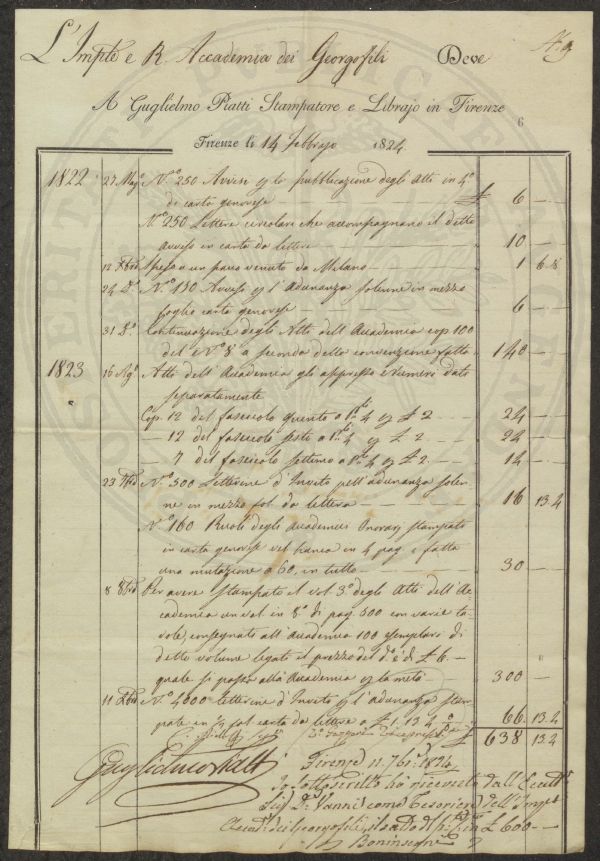 L'Imple e R. Accademia dei Georgofili Deve
A Guglielmo Piatti Stampatore e Librajo in Firenze
6
Firenze li 14 Febbrajo 1824
1822 27 Mag.º N.º 250 Avvisi p la pubblicazione degli Atti in 4º
di carta genovese £ 6 —
N.º 250 Lettere circolari che accompagnano il detto
avviso in carta da lettere 10 —
12 Spesa a un pacco venuto da Milano 1 6.8
24 D.º N.º 130 Avvisi p l'adunanza solenne in mezzo
foglio carta genovese 6 —
31 D.º Continuazione degli Atti dell'Accademia cop. 100
del N.º 8 a seconda della convenzione fatta 140 —
1823 16 Ag.º Atti dell'Accademia gli appresso Numeri dati
separatamente
Cop. 12 del fascicolo quinto a P. 4 p £ 2 24 —
— 12 del fascicolo sesto a P. 4 p £ 2 24 —
7 del fascicolo settimo a P. 4 p £ 2 14 —
23 7bre N.º 500 Letterine d'Invito pell'adunanza solen-
ne in mezzo fol. da lettera 16 13.4
N.º 160 Ruoli degli Accademici Onorarj stampato
in carta genovese vel bianca in 4 pag. e fatta
una mutazione a 60, in tutto 30 —
8 8bre Per avere stampato il vol. 3º degli Atti dell'Ac-
cademia un vol. in 8º di pag. 500 con varie ta-
vole, consegnati all'Accademia 100 esemplari di
detto volume legati il prezzo del d.º è di £ 6 —
quale si passa alla Accademia p la metà 300 —
11 Xbre N.º 4000 letterine d'Invito p l'adunanza stam-
pate in ½ fol. carta da lettere a £ 1.13.4 66. 13.4
£ 638 13.4
Guglielmo Piatti
Firenze 1824
Io sottoscritto ho ricevuto dall'
Sig. D. Vanni come Tesoriere dell'Imp.
Accad. dei Georgofili, il saldo di in £ 600 —
Boninsegni